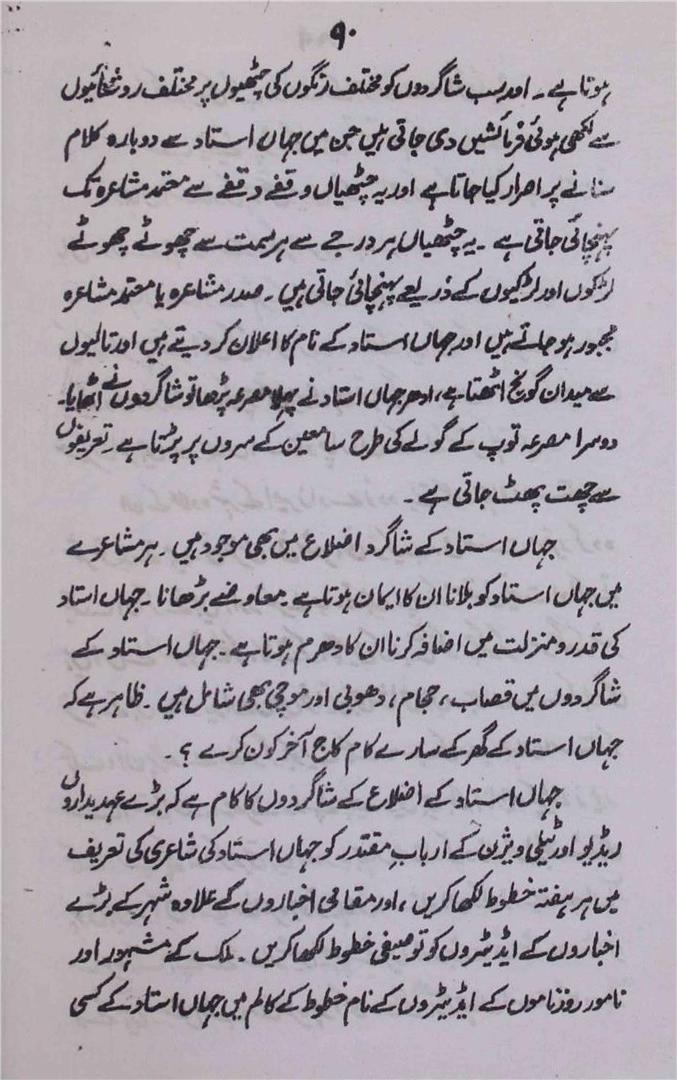 ۹۰
ہوتا ہے۔ اور سب شاگردوں کو مختلف رنگوں کی چٹھیوں پر مختلف روشنائیوں
سے لکھی ہوئی فرمائشیں دی جاتی ہیں جن میں جہاں استاد سے دوبارہ کلام
سنانے پر اصرار کیا جاتا ہے اور یہ چٹھیاں وقفے وقفے سے معتمد مشاعرہ تک
پہنچائی جاتی ہے۔ یہ چٹھیاں ہر درجے سے ہر سمت سے چھوٹے چھوٹے
لڑکوں اور لڑکیوں کے ذریعے پہنچائی جاتی ہیں۔ صدر مشاعرہ یا معتمد مشاعرہ
مجبور ہو جاتے ہیں اور جہاں استاد کے نام کا اعلان کر دیتے ہیں اور تالیوں
سے میدان گونج اٹھتا ہے، ادھر جہاں استاد نے پہلا مصرعہ پڑھا تو شاگردوں نے اٹھایا۔
دوسرا مصرعہ توپ کے گولے کی طرح سامعین کے سروں پر پڑتا ہے۔ تعریفوں
سے چھت پھٹ جاتی ہے۔
جہاں استاد کے شاگرد اضلاع میں بھی موجود ہیں۔ ہر مشاعرے
میں جہاں استاد کو بلانا ان کا ایمان ہوتا ہے۔ معاوضے بڑھانا۔ جہاں استاد
کی قدر و منزلت میں اضافہ کرنا ان کا دھرم ہوتا ہے۔ جہاں استاد کے
شاگردوں میں قصاب، حجام، دھوبی اور موچی بھی شامل ہیں۔ ظاہر ہے کہ
جہاں استاد کے گھر کے سارے کام کاج آخر کون کرے ؟۔
جہاں استاد کے اضلاع کے شاگردوں کا کام ہے کہ بڑے عہدیداروں
ریڈیو اور ٹیلی ویژن کے ارباب مقتدر کو جہاں استاد کی شاعری کی تعریف
میں ہر ہفتہ خطوط لکھا کریں، اور مقامی اخباروں کے علاوہ شہر کے بڑے
اخباروں کے ایڈیٹروں کو توصیفی خطوط لکھا کریں۔ ملک کے مشہور اور
نامور روزناموں کے ایڈیٹروں کے نام خطوط کے کالم میں جہاں استاد کے کسی